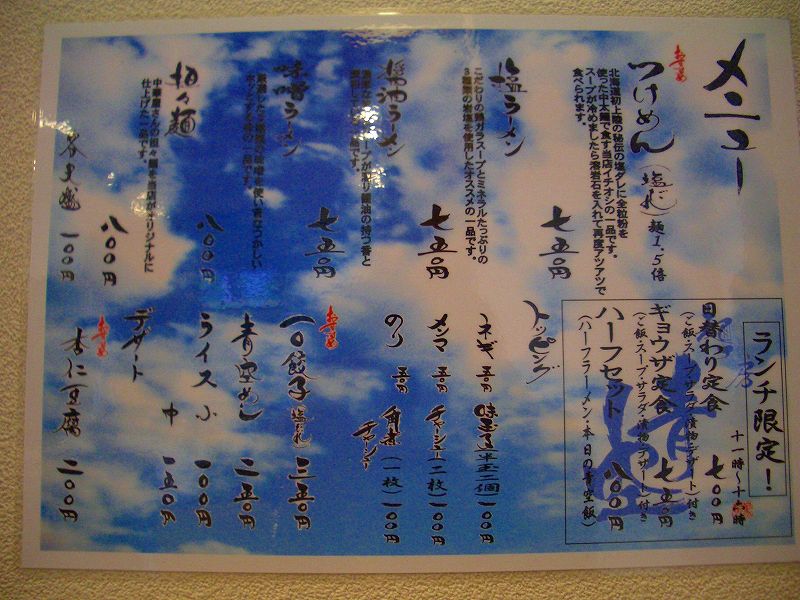 メニュー
おすすめ
つけめん(塩だれ)麺1.5倍
北海道初上陸の秘伝の塩ダレに全粒粉を
使った中太麺で食す当店イチオシの一品です。
スープが冷めましたら溶岩石を入れて再度アツアツで
食べられます。
七五〇円
塩ラーメン
こだわりの鶏ガラスープとミネラルたっぷりの
3種類の岩塩を使用したオススメの一品です。
七五〇円
醤油ラーメン
七五〇円
味噌ラーメン
八〇〇円
担々麺
中華屋さんの担々麺を当店がオリジナルに
仕上げた一品です。
八〇〇円
一〇〇円
ランチ限定!
十一時~十六時
日替わり定食 七〇〇円
(ご飯・スープ・サラダ・漬物・デザート)付き
ギョウザ定食 七五〇円
(ご飯・スープ・サラダ・漬物・デザート)付き
ハーフセット 八〇〇円
(ハーフラーメン・本日の青空飯)
トッピング
ネギ 五〇円 味玉子(半玉二個)一〇〇円
メンマ 五〇円 チャーシュー(二枚)一〇〇円
のり 五〇円 角煮チャーシュー(一枚)一〇〇円
おすすめ
一〇餃子 塩だれ 三五〇円
青空めし 二五〇円
ライス 小 一〇〇円
中 一五〇円
デザート
おすすめ
杏仁豆腐 二〇〇円